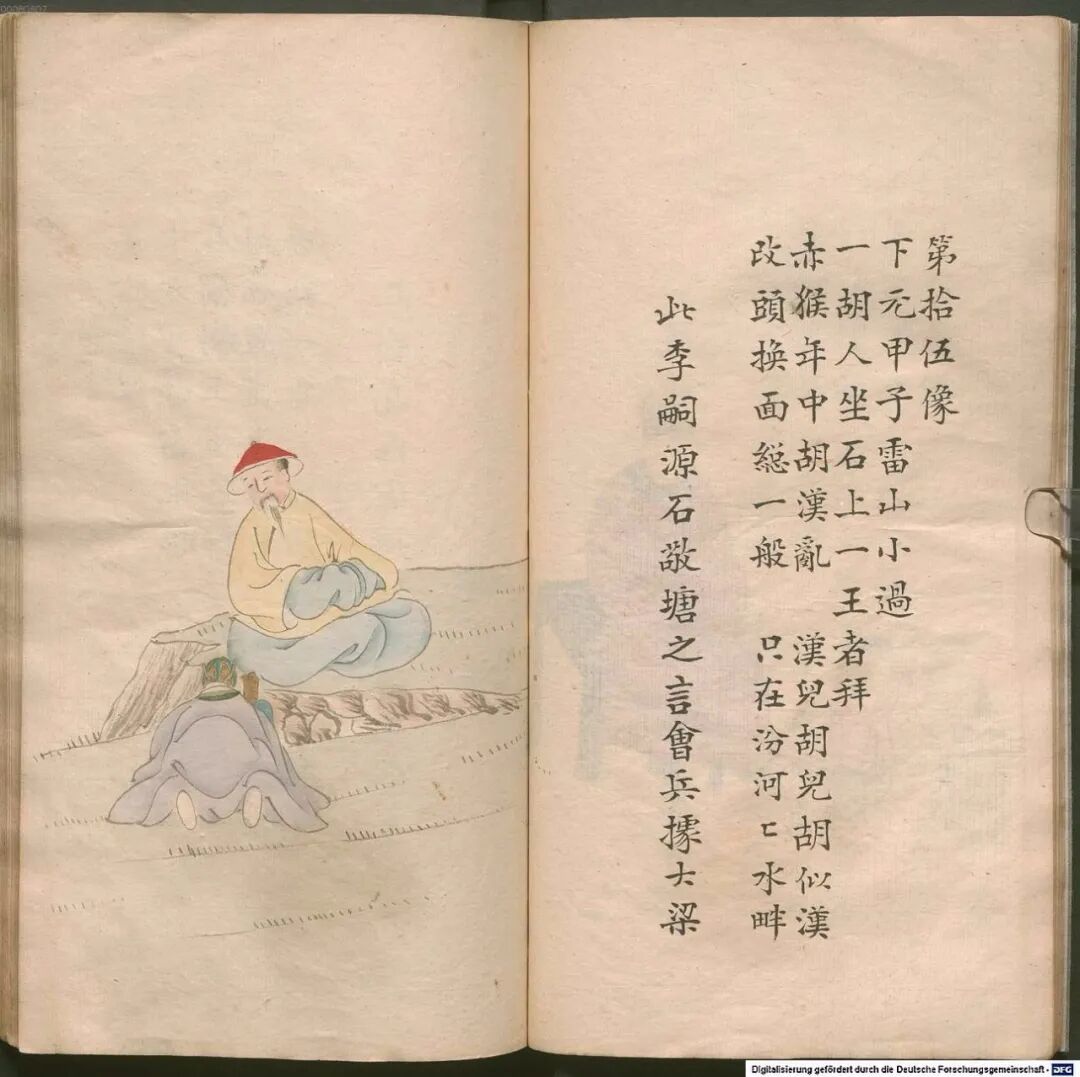 第拾伍像
下元甲子雷山小過
一胡人坐石上一王者拜
赤猴年中胡漢亂 漢兒胡兒胡似漢
改頭換面緫一般 只在汾河㔾水畔
此李嗣源石敬塘之言會兵據大梁
Digitalisierung gefördert durch die Deutsche Forschungsgemeinschaft - DFG